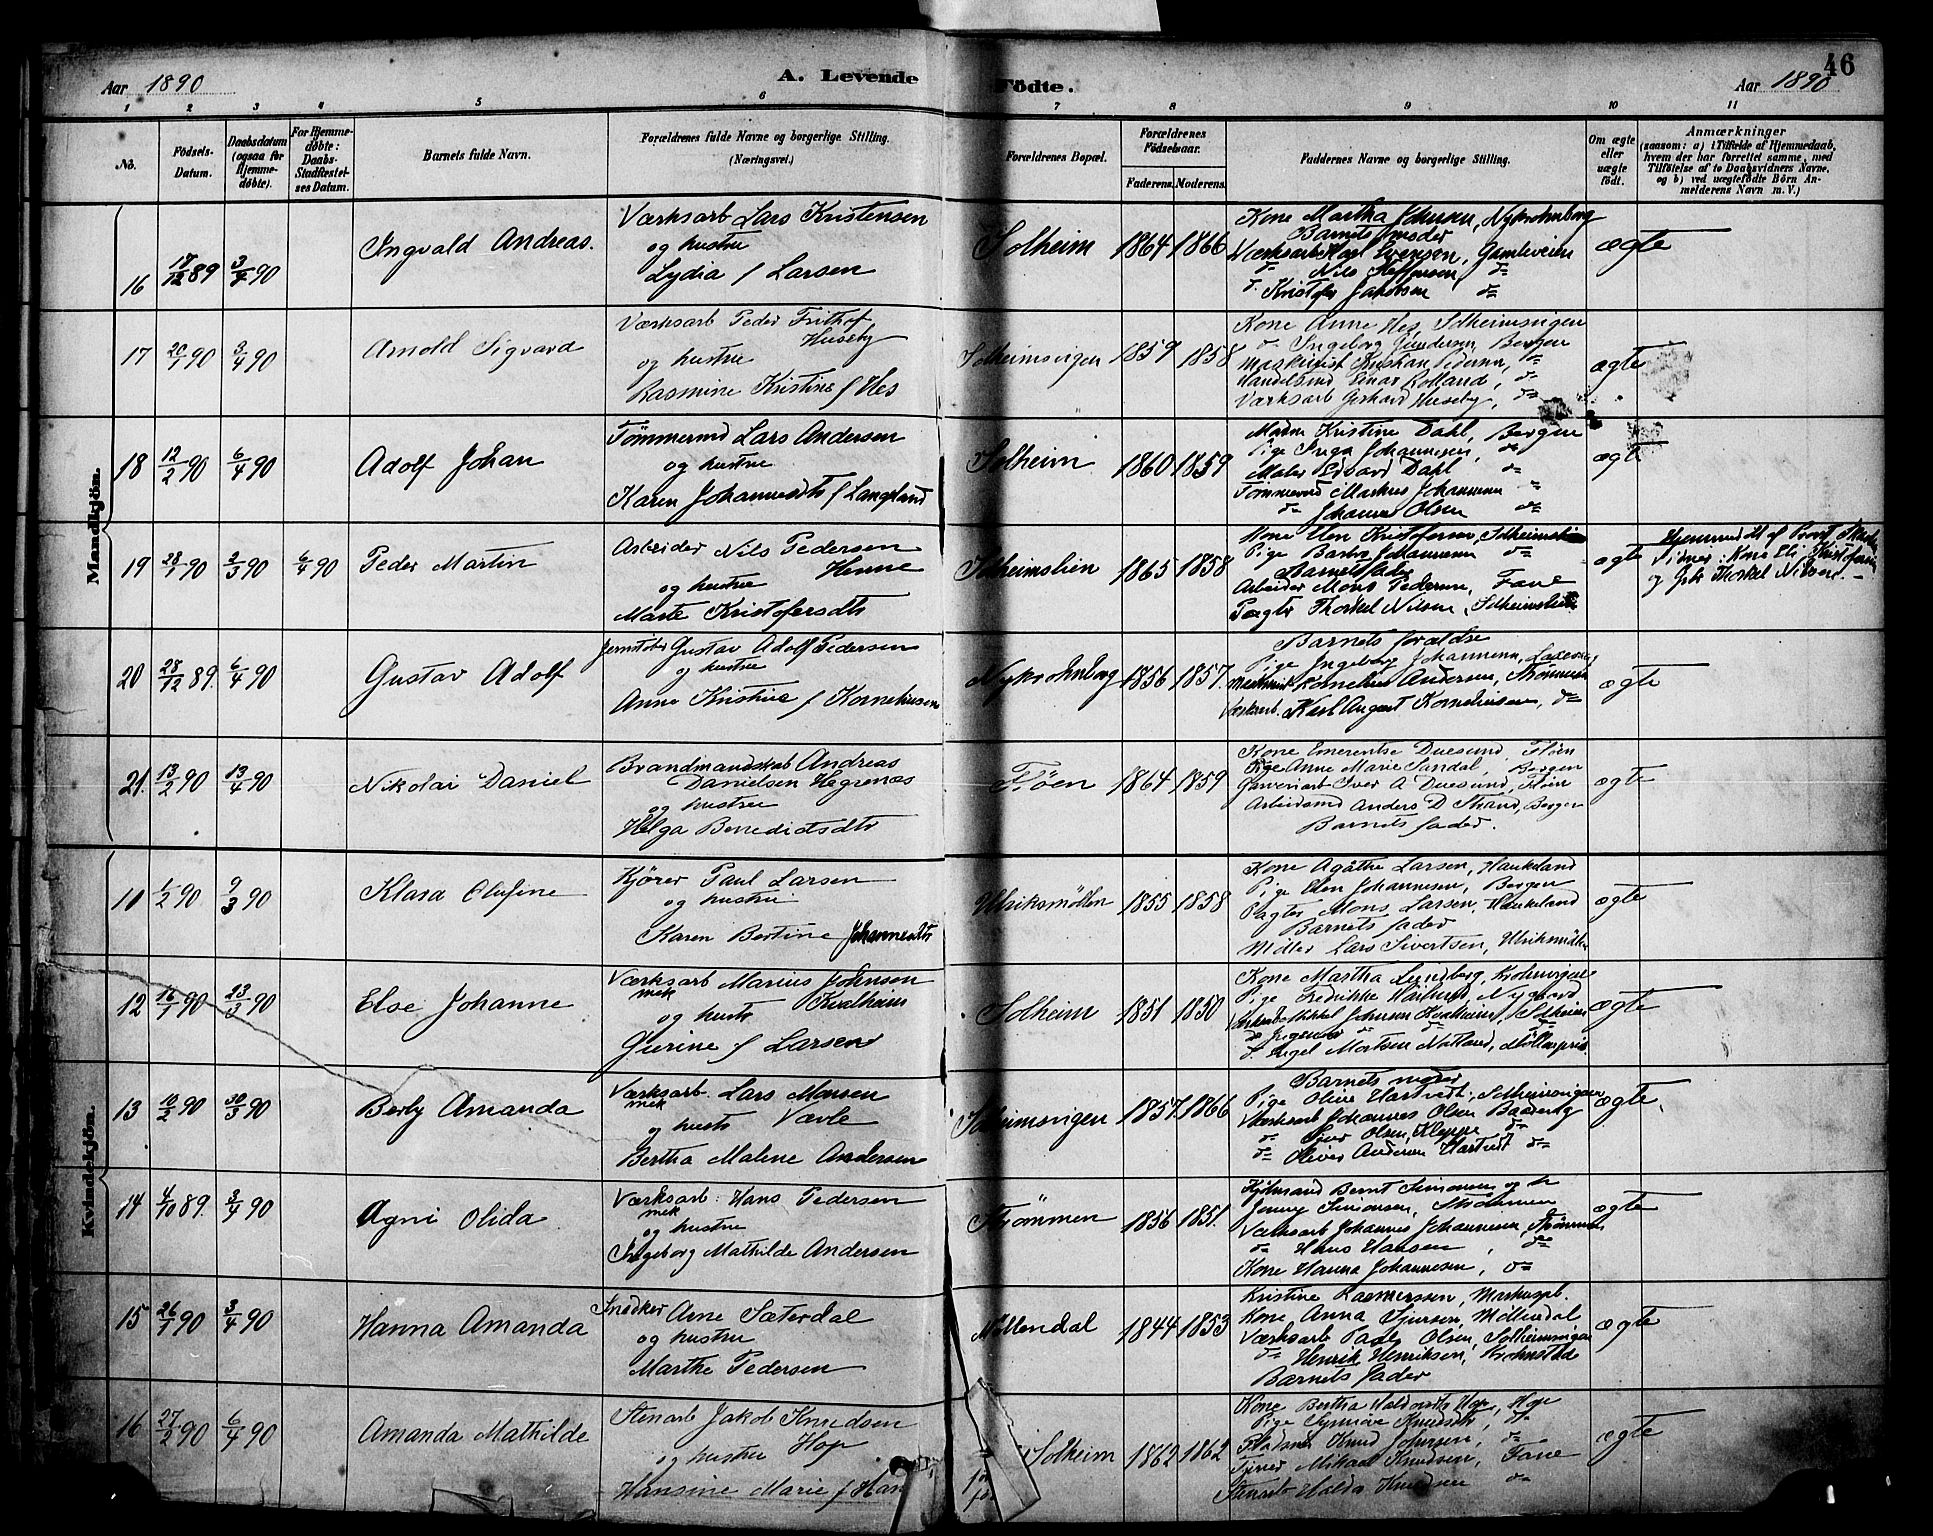 46
Aar 1890
A. Levende Födte.
Aar 1890
1 2 3 4 5 6 7 8 9 10 11
No.
Födsels-Datum.
Daabsdatum (ogsaa for Hjemme-døbte).
For Hjemme-døbte: Daabs-Stadfæstel-ses Datum.
Barnets fulde Navn.
Forældrenes fulde Navne og borgerlige Stilling.
(Næringsvei.)
Forældrenes Bopæl.
Forældrenes Födselsaar.
Faderens. Moderens.
Faddernes Navne og borgerlige Stilling.
Om ægte eller uægte födt.
Anmærkninger
(saasom: a) i Tilfælde af Hjemmedaab,
hvem der har forrettet samme, med
Tilföielse af to Daabsvidners Navne,
og b) ved uægtefödte Börn An-
melderens Navn m. V.)
Mandkjön.
16 17/12 89 3/4 90 Ingvald Andreas.
Værksarb Lars Kristensen
og hustru
Lydia f Larsen
Solheim 1864 1866
Kone Martha Johnsen, Nykrohnborg
Barnets moder
Værksarb Karl Evensen, Gamleveien
do Nils Steffensen do
do Kristofer Jakobsen do
ægte
17 20/1 90 3/4 90 Arnold Sigvard
Værksarb Peder Frithof
Huseby
og hustru
Rasmine Kristine f Hes
Solheimsvigen 1859 1858
Kone Anne Hes, Solheimsvigen
do Ingeborg Gundersen, Bergen
Maskinist Kristian Pedersen, do
Handelsmd Einar Rolland, do
Værksarb Gerhard Huseby, do
ægte
18 12/2 90 6/4 90 Adolf Johan
Tömmermd Lars Andersen
og hustru
Karen Johannesdtr f Langeland
Solheim 1860 1859
Kristine Dahl, Bergen
Pige Inga Johannesen, do
Maler Edvard Dahl do
Tömmermd Markus Johannesen do
do Johannes Olsen do
ægte
19 28/1 90 2/3 90 6/4 90 Peder Martin
Arbeider Nils Pedersen
Henne
og hustru
Marte Kristofersdtr
Solheimslien 1865 1858
Kone Elen Kristofersen, Solheimslien
Pige Barbro Johannesen do
Barnets fader
Arbeider Mons Pedersen, Fane
Pagter Thorkel Nilsen, Solheimslien
ægte
20 28/12 89. 6/4 90 Gustav Adolf
Jernstöber Gustav Adolf Pedersen
og hustru
Anne Kristine f Korneliusen
Nykrohnborg 1856 1857.
Barnets forældre
Pige Ingeborg Johannesen, Laxevaag
Maskinist Kornelius Andersen, Strömmen
Værksarb. Karl August Korneliusen, do
ægte
21. 13/2 90 13/4 90 Nikolai Daniel
Brandmandskab Andreas
Danielsen Hegrenæs
og hustru
Helga Benedictsdtr
Flöen 1864 1859
Kone Emerentse Duesund, Flöen
Pige Anne Marie Sandal, Bergen
Garveriarb Iver A Duesund, Flöen
Arbeidsmd Anders D Strand, Bergen
Barnets fader.
ægte
Kvindekjön.
11 6/2 90 9/3 90 Klara Olufine
Kjörer Paul Larsen
og hustru
Karen Bertine Johannesdtr
Ulriksmöllen 1855 1858
Kone Agathe Larsen, Haukeland
Pige Elen Johannesen, Bergen
Pagter Mons Larsen, Haukeland
Barnets fader
Möller Lars Sivertsen, Ulriksmöllen
ægte
12 16/1 90 23/3 90 Else Johanne
Værksarb Marius Johnsen
mek Kvalheim
og hustr
Gurine f Larsen
Solheim 1851 1850
Kone Martha Lundberg, Krohnvigen
Pige Fredrikke Haslund, Nygaard
Værksarb Mikkel Johnsen Kvalheim, Solheim
do Ingel Mortsen Natland, Möllenpris.
ægte
13 10/2 90 30/3 90 Berly Amanda
Værksarb. Lars Monsen
mek
og hustr Varle
Bertha Malene Andersen
Solheimsvigen 1857. 1866
Barnets moder
Pige Oline Hartvedt, Solheimsvigen
Værksarb Johannes Olsen
do Sjur Olsen Kleppe do
do Oliver Andersen Hartvedt do
ægte.
14 4/10 89. 3/4 90 Agni Olida
Værksarb. Hans Pedersen
mek
og hustru
Ingeborg Mathilde Andersen
Strömmen 1856 1851.
Kjöbmand Bernt Simonsen og hr
Jenny Simonsen, Strömmen
Værksarb Johannes Johannesen, Strömmen
do Hans Hansen, do
Kone Hanna Johannesen, do
ægte
15 26/1 90 3/4 90 Hanna Amanda
Snedker Arne Sæterdal
og hustru
Marthe Pedersen
Möllendal 1844 1853
Kristine Rasmussen, Markuspl.
Kone Anna Sjursen, Möllendal
Værksarb Peder Olsen, Solheimsvigen
do Henrik Henriksen, Krohnstad
Barnets fader
ægte
16 27/2 90 6/4 90 Amanda Mathilde
Stenarb Jakob Knudsen
Hop
og hustru
Hansine Marie f Han
Solheim 1862 1862
Kone Bertha Haldorsdtr Hop, Hop
Pige Synnöve Knudsdtr, do
Knud Johnsen, do
Tjener Mikael Knudsen, Fane
Stenarb Haldor Knudsen do
ægte